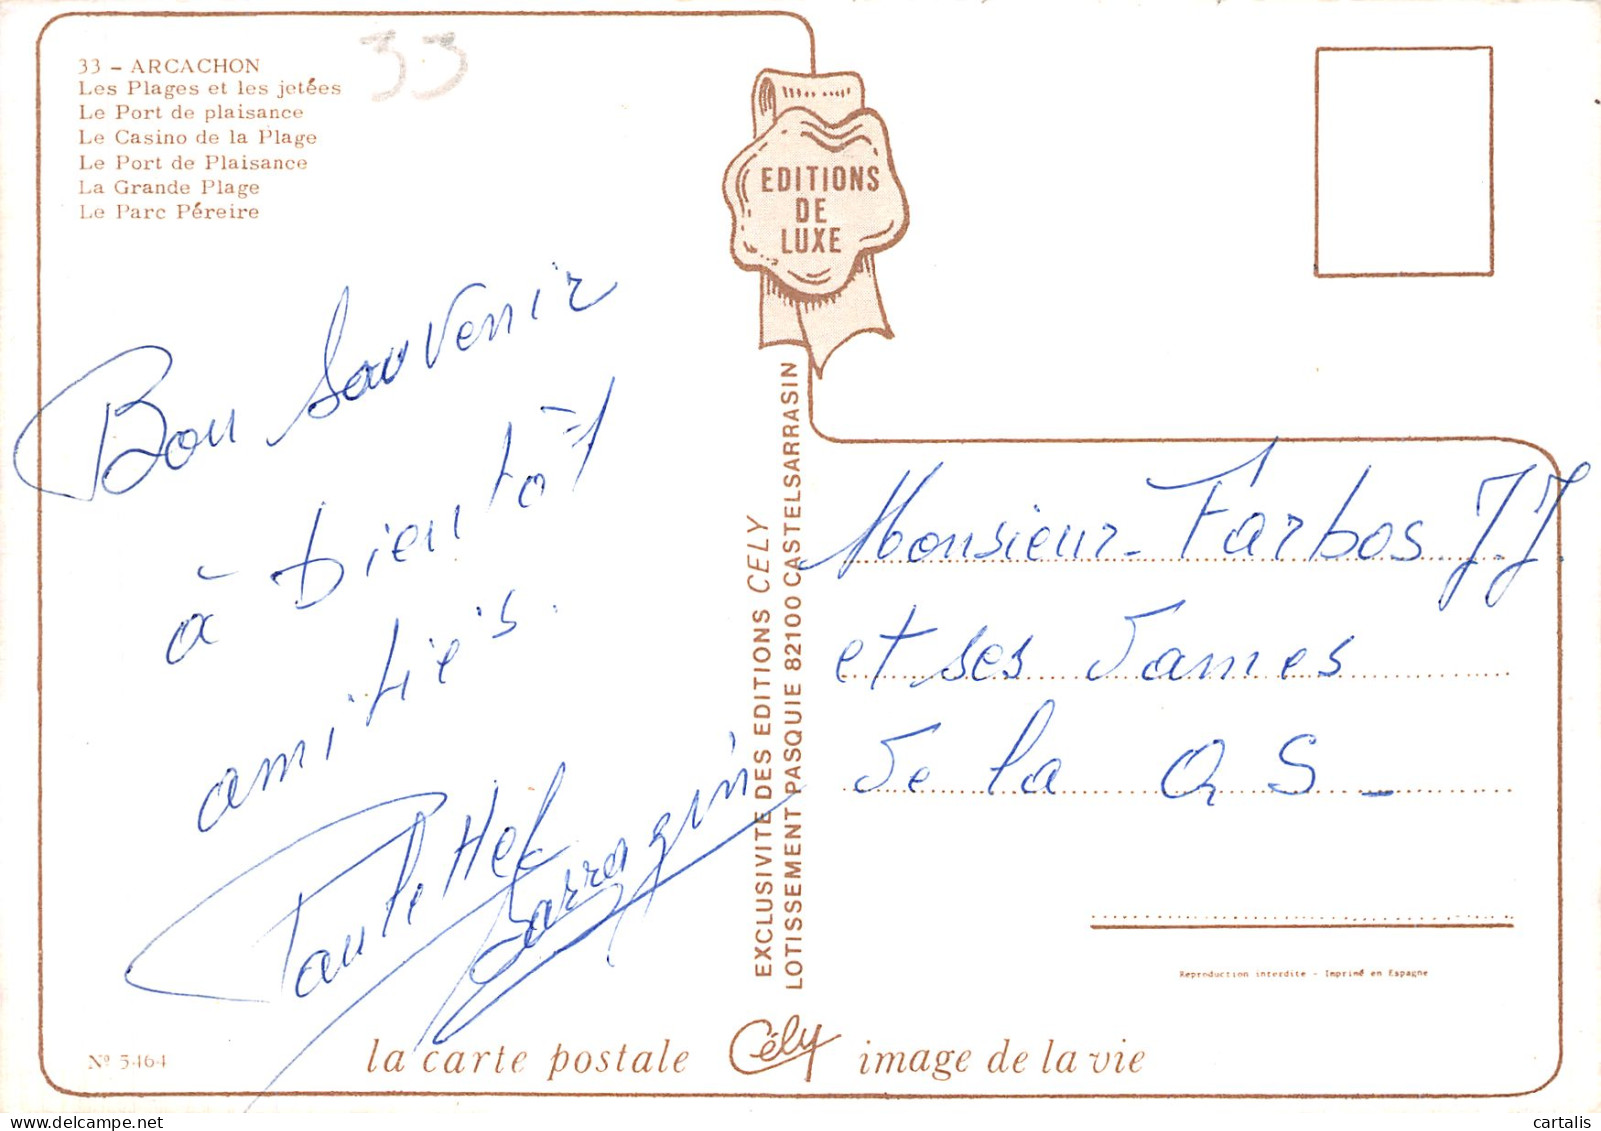 33 - ARCACHON
Les Plages et les jetées
Le Port de plaisance
Le Casino de la Plage
Le Port de Plaisance
La Grande Plage
Le Parc Péreire
33
EDITIONS
DE
LUXE
Bon Souvenir
à bientôt
amitiés.
EXCLUSIVITE DES EDITIONS CELY
LOTISSEMENT PASQUIE 82100 CASTELSARRASIN
Monsieur Farbos JJ.
et ses Dames
De la
Reproduction interdite - Imprimé en Espagne
Nº 5464
la carte postale Cély image de la vie
cartalis